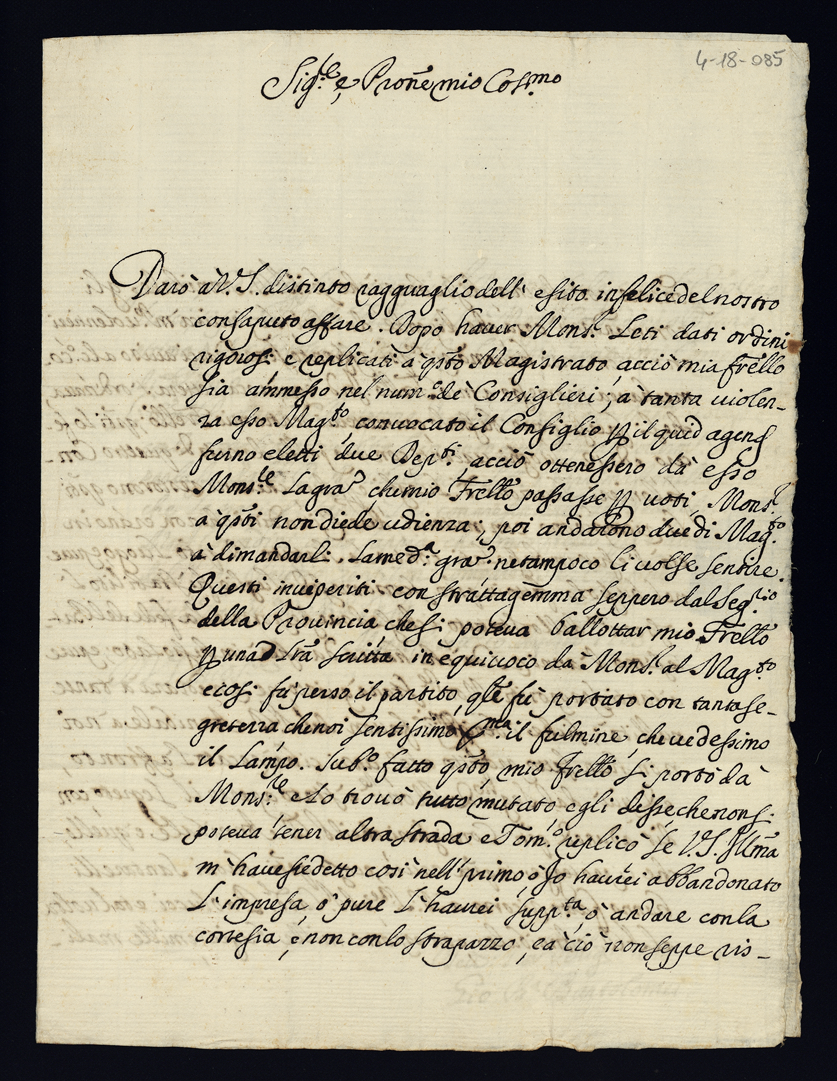 4-18-085
Sig.re e Prone mio Coss.mo
Darò à V.S. distinto ragguaglio dell' esito infelice del nostro
consaputo affare. Dopo haver Mons.r Leti dati ordini
rigorosi e replicati a qsto Magistrato, acciò mia frello
sia ammesso nel num.o dè Consiglieri, à tanta violen-
za esso Mag.to convocato il Consiglio p il quid agend
furno eletti due Dep.ti acciò ottenessero dà esso
Mons.re La gra, che mio Frello passasse p voti, Mons.r
a qsti non diede udienza, poi andarono due di Mag.to
à dimandarli La med.a gra, ne tampoco li volse sentire.
Questi inviperiti con strattagemma seppero dal Seg.rio
della Provincia che si poteva ballottar mio Frello
p una Lra scritta in equivoco dà Mons.r al Mag.to
e così fù perso il partito, qle fù portato con tanta se-
gretezza che noi sentissimo p.ma il fulmine, che vedessimo
il Lampo. Sub.o fatto qsto mio frello si portò dà
Mons.re e Lo trovò tutto mutato, e gli disse che non si
poteva tener altra strada e Tom.o replicò se V.S. Illma
m' havesse detto così nell' primo ò Io haurei abbandonato
L' impresa, ò pure L' haurei supp.ta, ò andare con la
cortesia, e non con lo strapazzo, e à ciò non seppe ris-